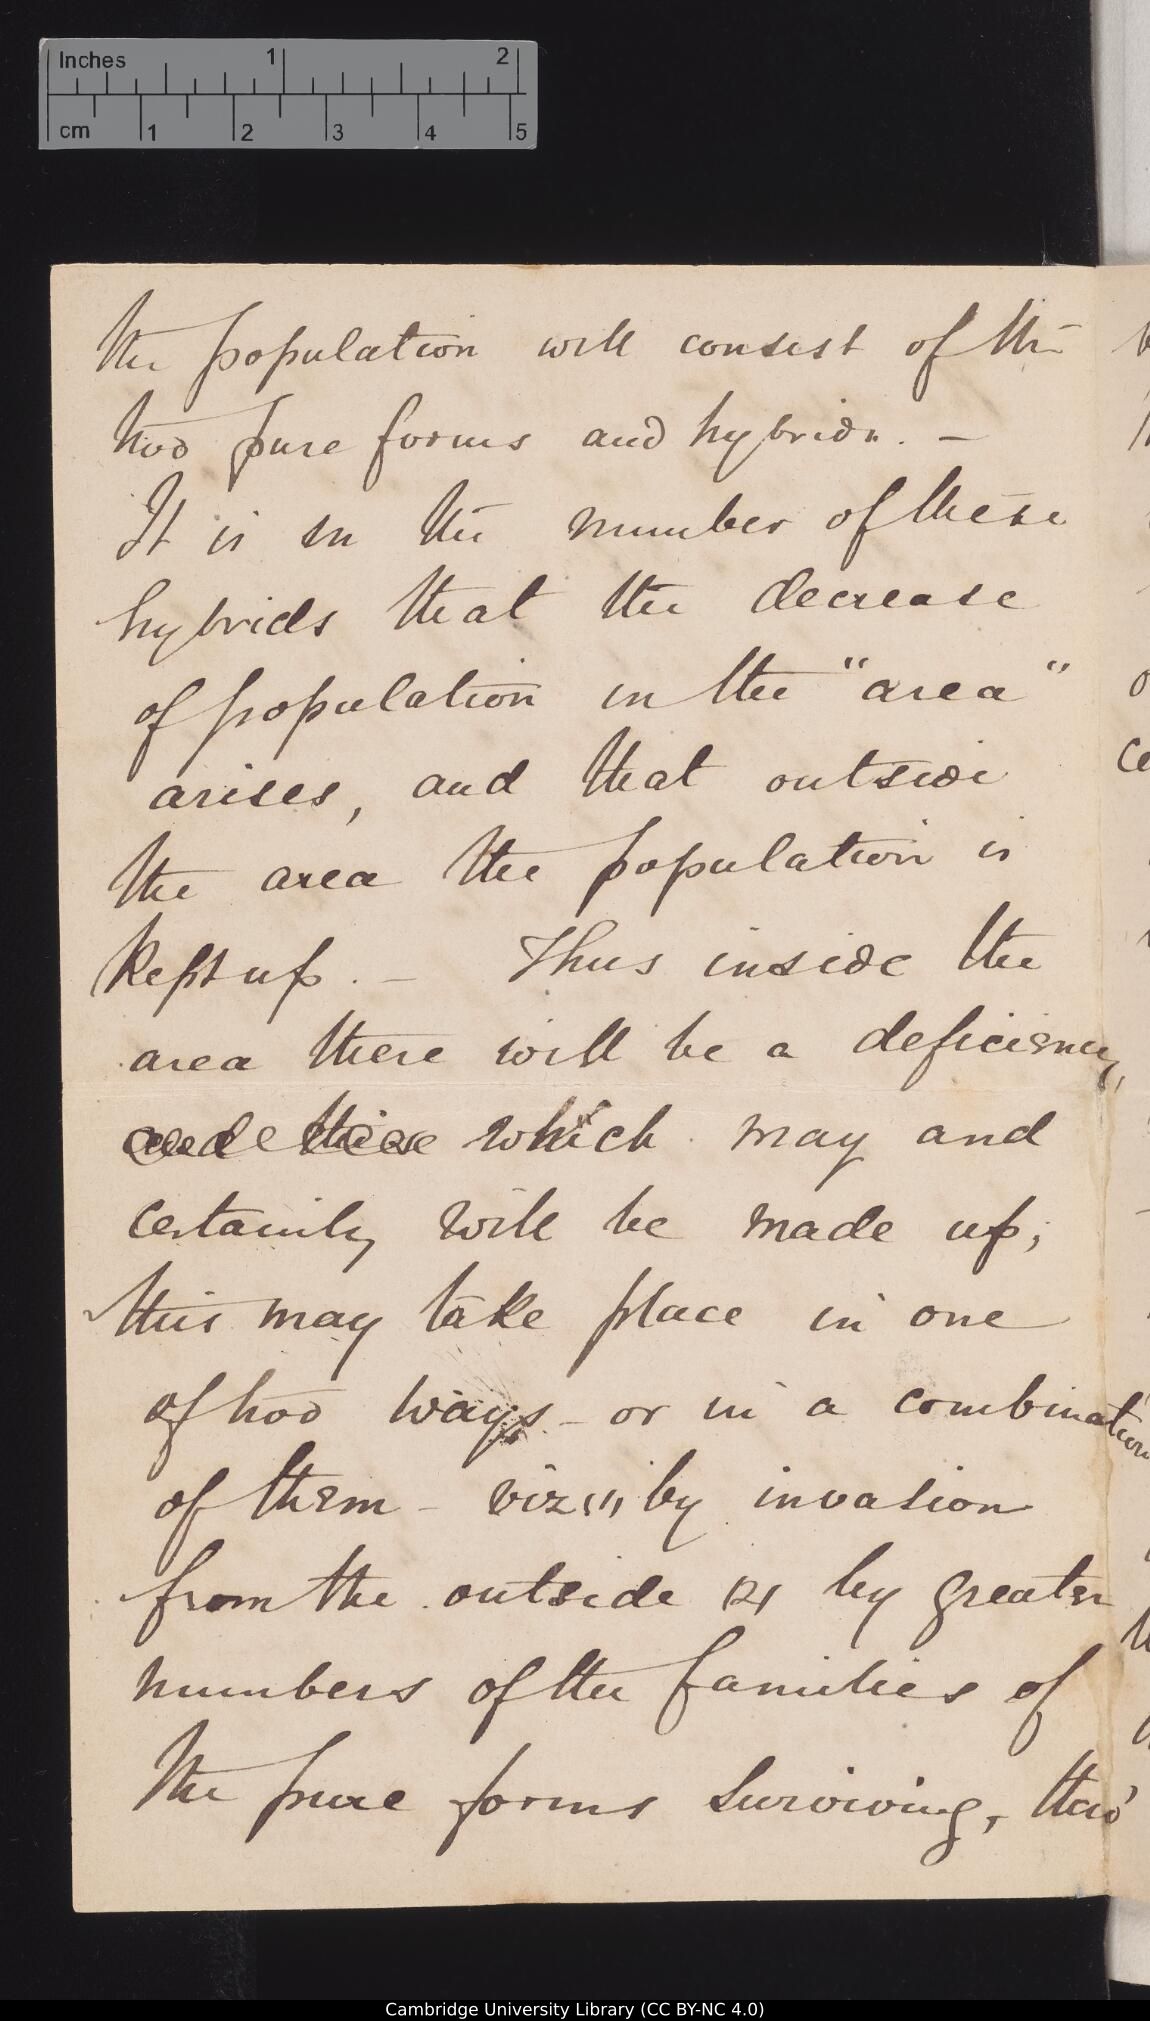 Inches 1 2
cm 1 2 3 4 5
the population will consist of the
two pure forms and hybrids. –
It is in the number of these
hybrids that the decrease
of population in the "area"
arises, and that outside
the area the population is
kept up. – Thus inside the
area there will be a deficiency,
which may and
certainly will be made up;
this may take place in one
of two ways – or in a combination
of them – viz (1) by invasion
from the outside (2) by greater
numbers of the families of
the pure forms surviving, tho'
Cambridge University Library (CC BY-NC 4.0)